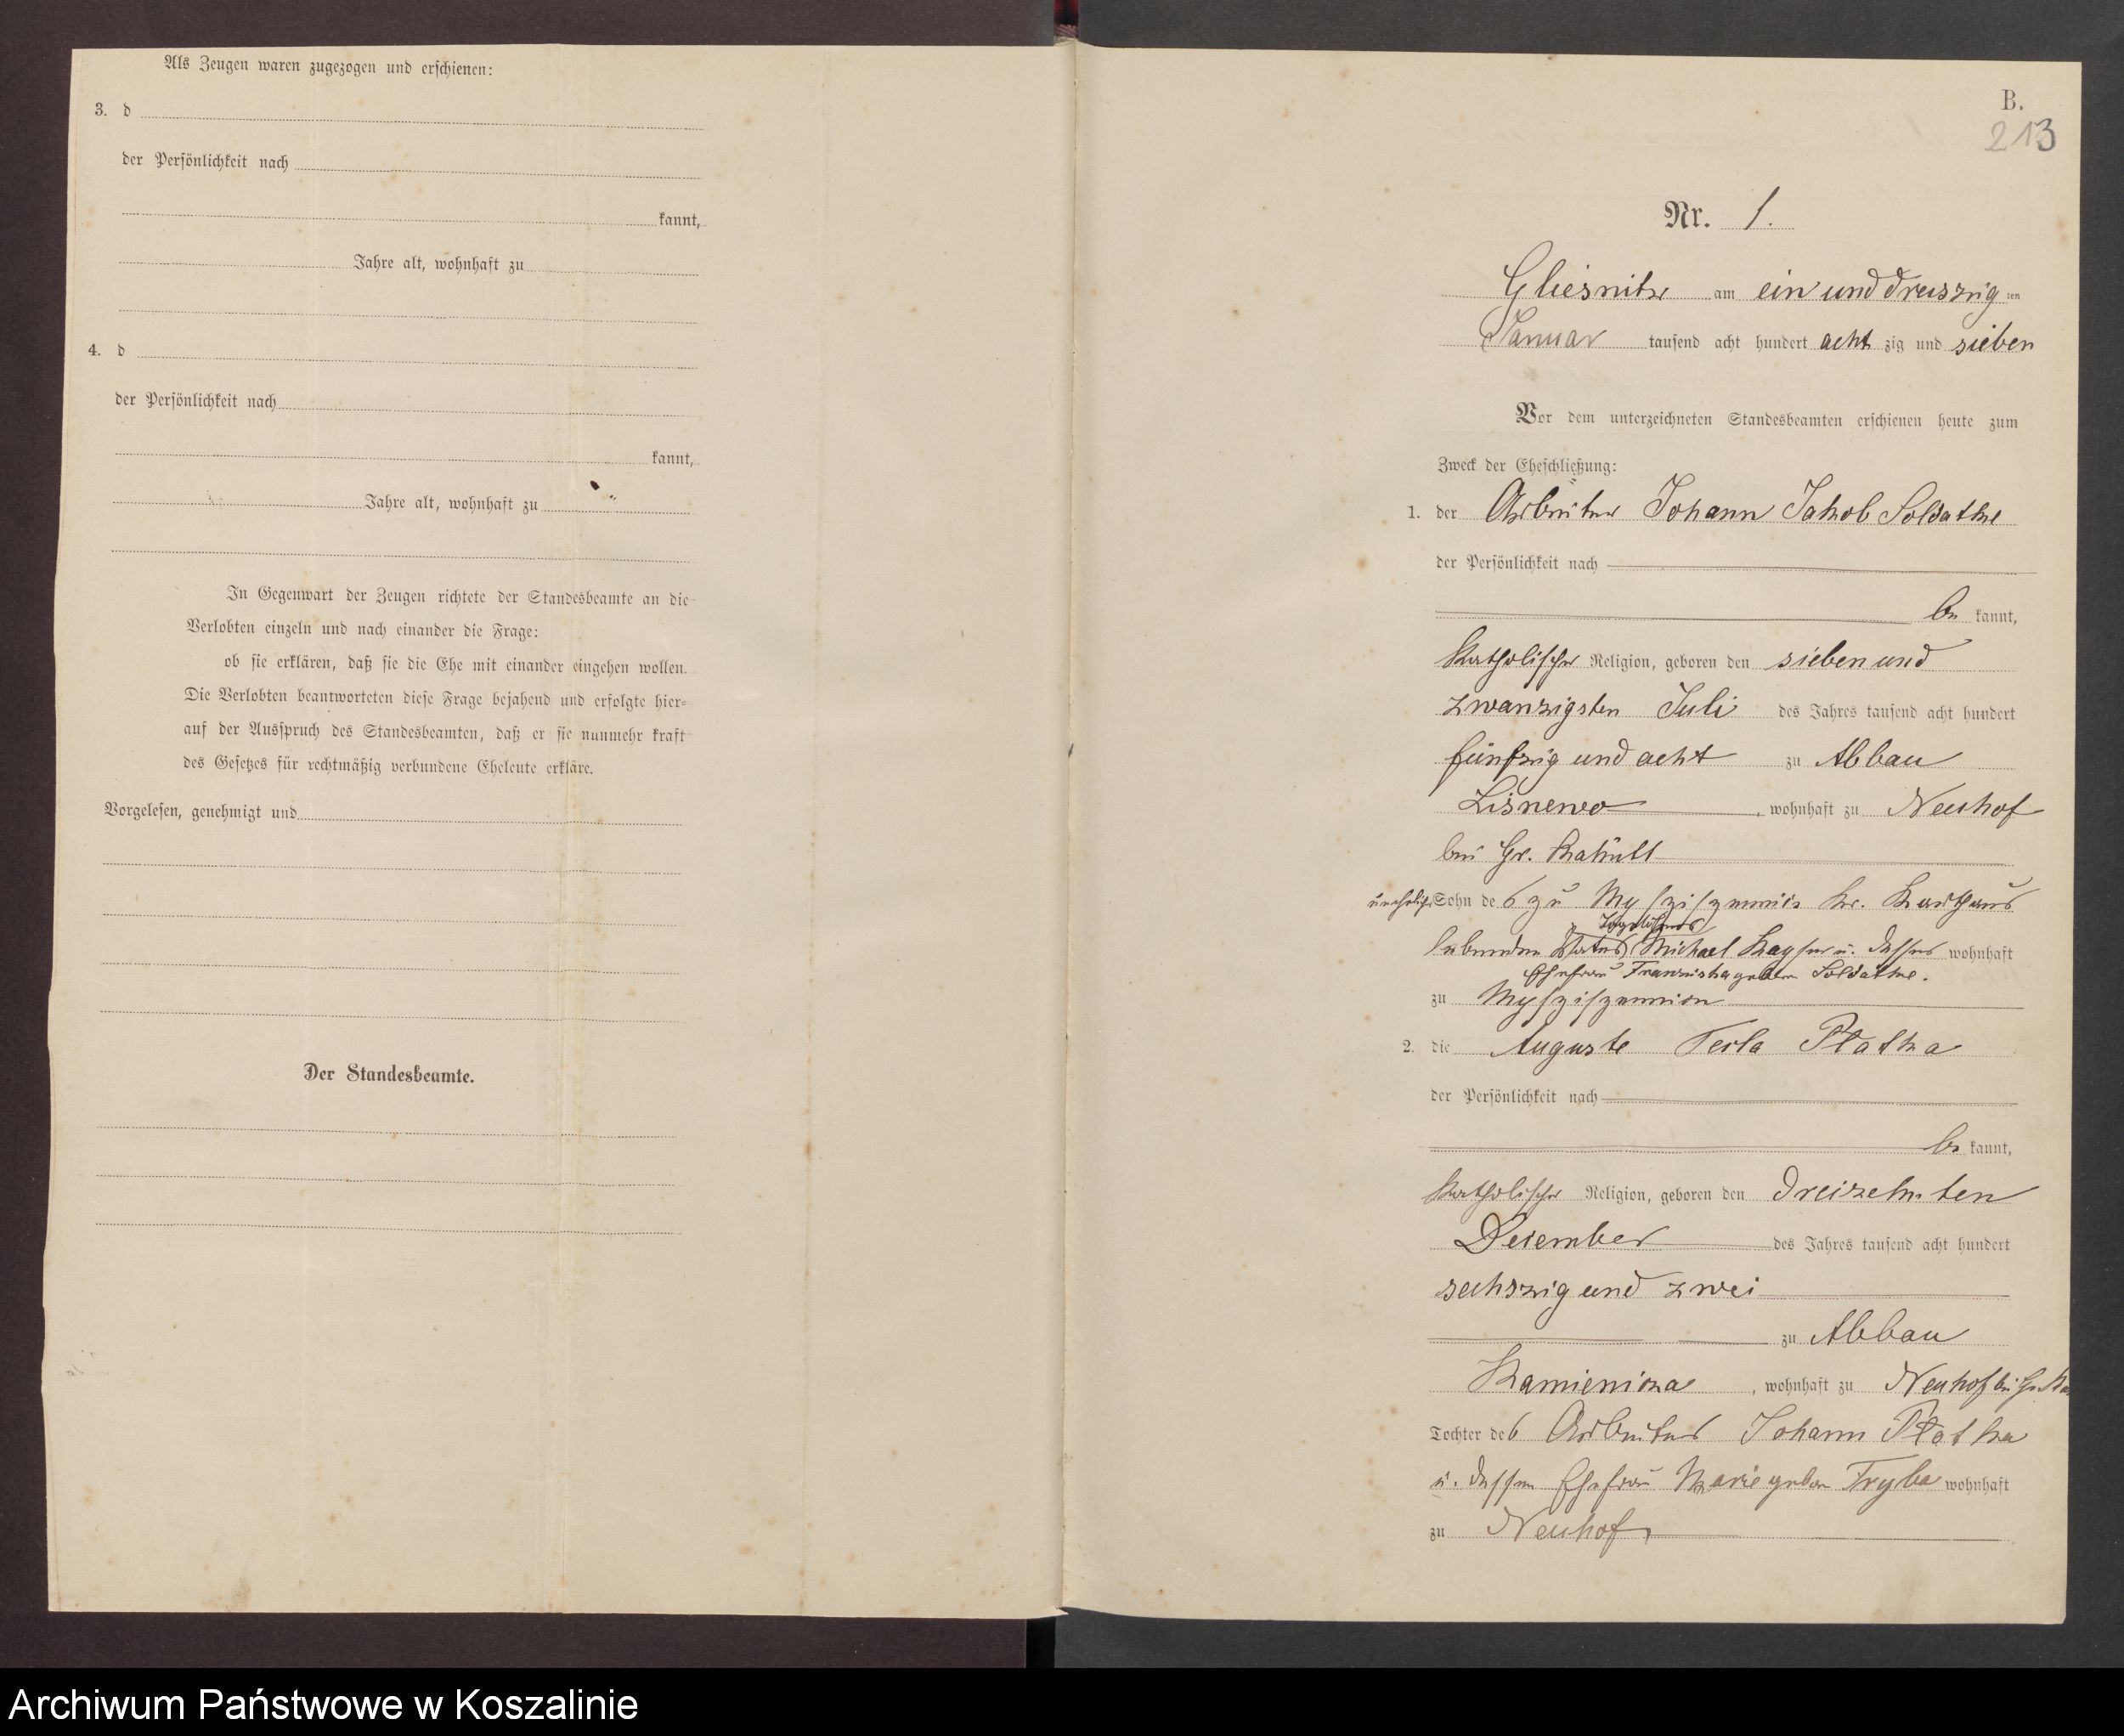 Als Zeugen waren zugezogen und erschienen:
3. d
der Persönlichkeit nach
kannt,
Jahre alt, wohnhaft zu
4. d
der Persönlichkeit nach
kannt,
Jahre alt, wohnhaft zu
In Gegenwart der Zeugen richtete der Standesbeamte an die
Verlobten einzeln und nach einander die Frage:
ob sie erklären, daß sie die Ehe mit einander eingehen wollen.
Die Verlobten beantworteten diese Frage bejahend und erfolgte hier-
auf der Ausspruch des Standesbeamten, daß er sie nunmehr kraft
des Gesetzes für rechtmäßig verbundene Eheleute erkläre.
Vorgelesen, genehmigt und
Der Standesbeamte.
B.
213
Nr. 1.
Gliesnitz am ein und dreiszig ten
Januar tausend acht hundert acht zig und sieben
Vor dem unterzeichneten Standesbeamten erschienen heute zum
Zweck der Eheschließung:
1. der Arbeiter Johann Jakob Soldatke
der Persönlichkeit nach
be kannt,
katholischer Religion, geboren den sieben und
zwanzigsten Juli des Jahres tausend acht hundert
fünfzig und acht zu Abbau
Lisnewo, wohnhaft zu Neuhof
bei Gr.
unehelicher Sohn des zu Kr. Karthaus
Tagelöhners
lebenden Michael u. dessen wohnhaft
Ehefrau Franziska geboren Soldatke.
zu
2. die Auguste Tekla Platka
der Persönlichkeit nach
be kannt,
katholischer Religion, geboren den dreizehnten
Dezember des Jahres tausend acht hundert
sechszig und zwei
zu Abbau
Kamienica, wohnhaft zu Neuhof bei Gr.
Tochter des Arbeiters Johann Platka
u. dessen Ehefrau Marie geboren Tryba wohnhaft
zu Neuhof
Archiwum Państwowe w Koszalinie